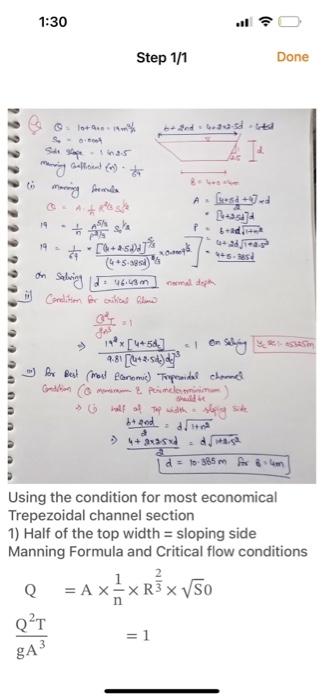 1:30
Step 1/1
Done
Q = 10+9
S₀ = 0.0009
Side slope = 1 in 2.5
manning Coefficient (n) =
(i) manning formula
Q = A. 1/n R^2/3 S₀^1/2
19 = 1/n A^5/3 / P^2/3 S₀^1/2
A = [4+5d+4] × d / 2
= [4+2.5d]d
P = b+2d√1+n²
= 4+2d√1+2.5²
4+5.385d
on Solving d = 46.48m normal depth
ii) Condition for critical flow
Q²T / gA³ = 1
⇒ 19² × [4+5d] / 9.81 [(4+2.5d)d]³ = 1 on Solving
iii) for Best (most Economic) Trapezoidal channel
Condition (Q maximum & Perimeter minimum) should be
⇒ (i) half of Top width = sloping side
b+2nd / 2 = d√1+n²
⇒ 4+2×2.5×d / 2 = d√1+2.5²
d = 10.385m for B = 4m
Using the condition for most economical
Trepezoidal channel section
1) Half of the top width = sloping side
Manning Formula and Critical flow conditions
Q = A × 1/n × R^2/3 × √S0
Q²T / gA³ = 1